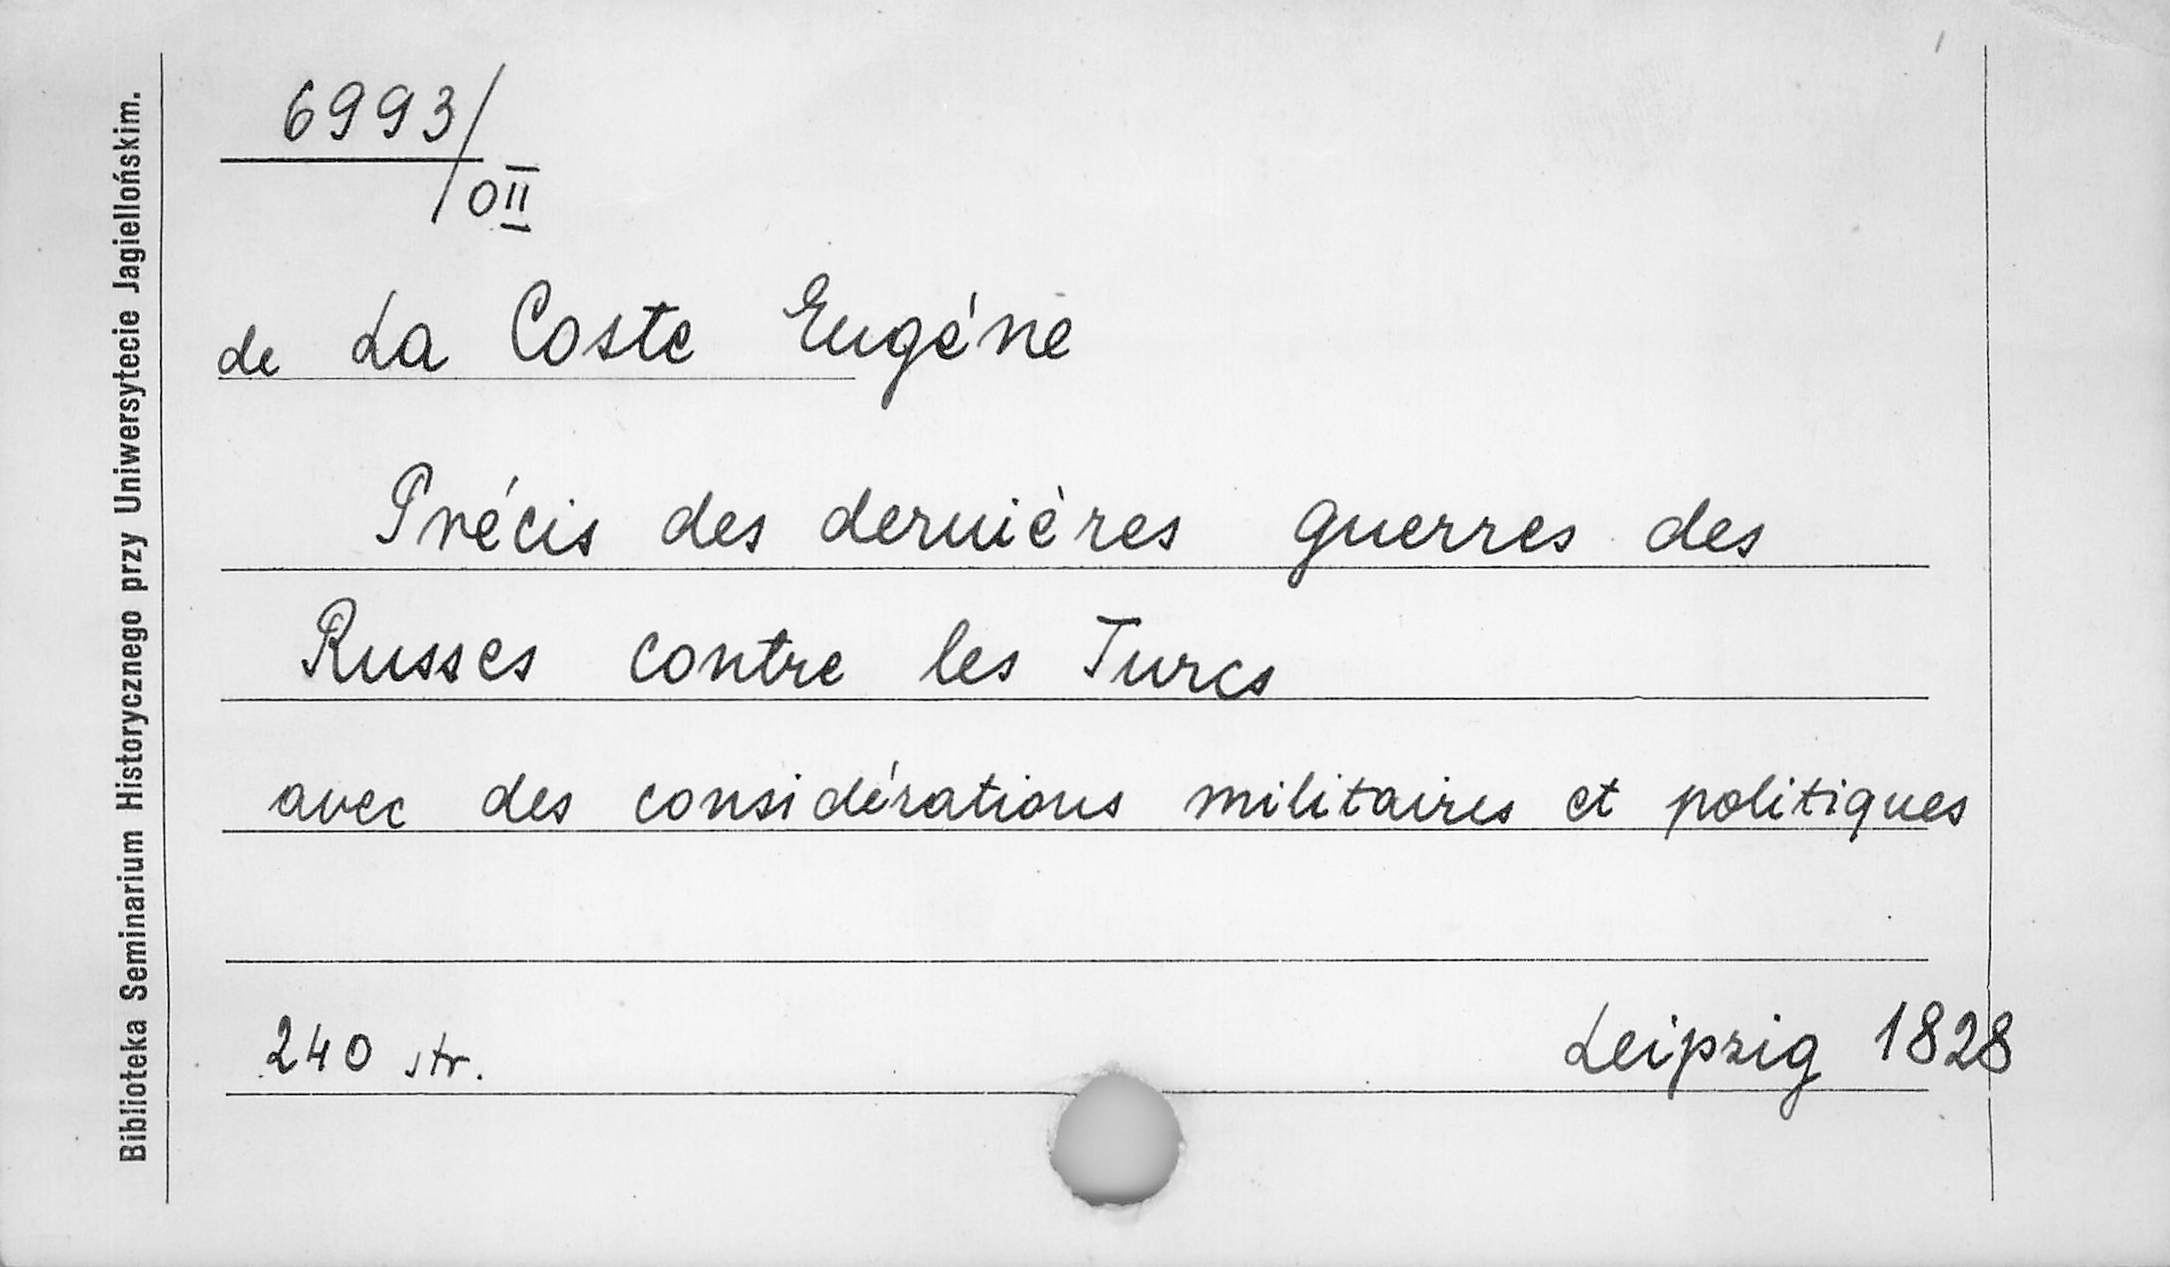 Biblioteka Seminarium Historycznego przy Uniwersytecie Jagiellońskim.
6993/
OII
de La Coste Eugéne
Précis des dernières guerres des
Russes contre les Turcs
avec des considérations militaires et politiques
240 str.
Leipzig 1828